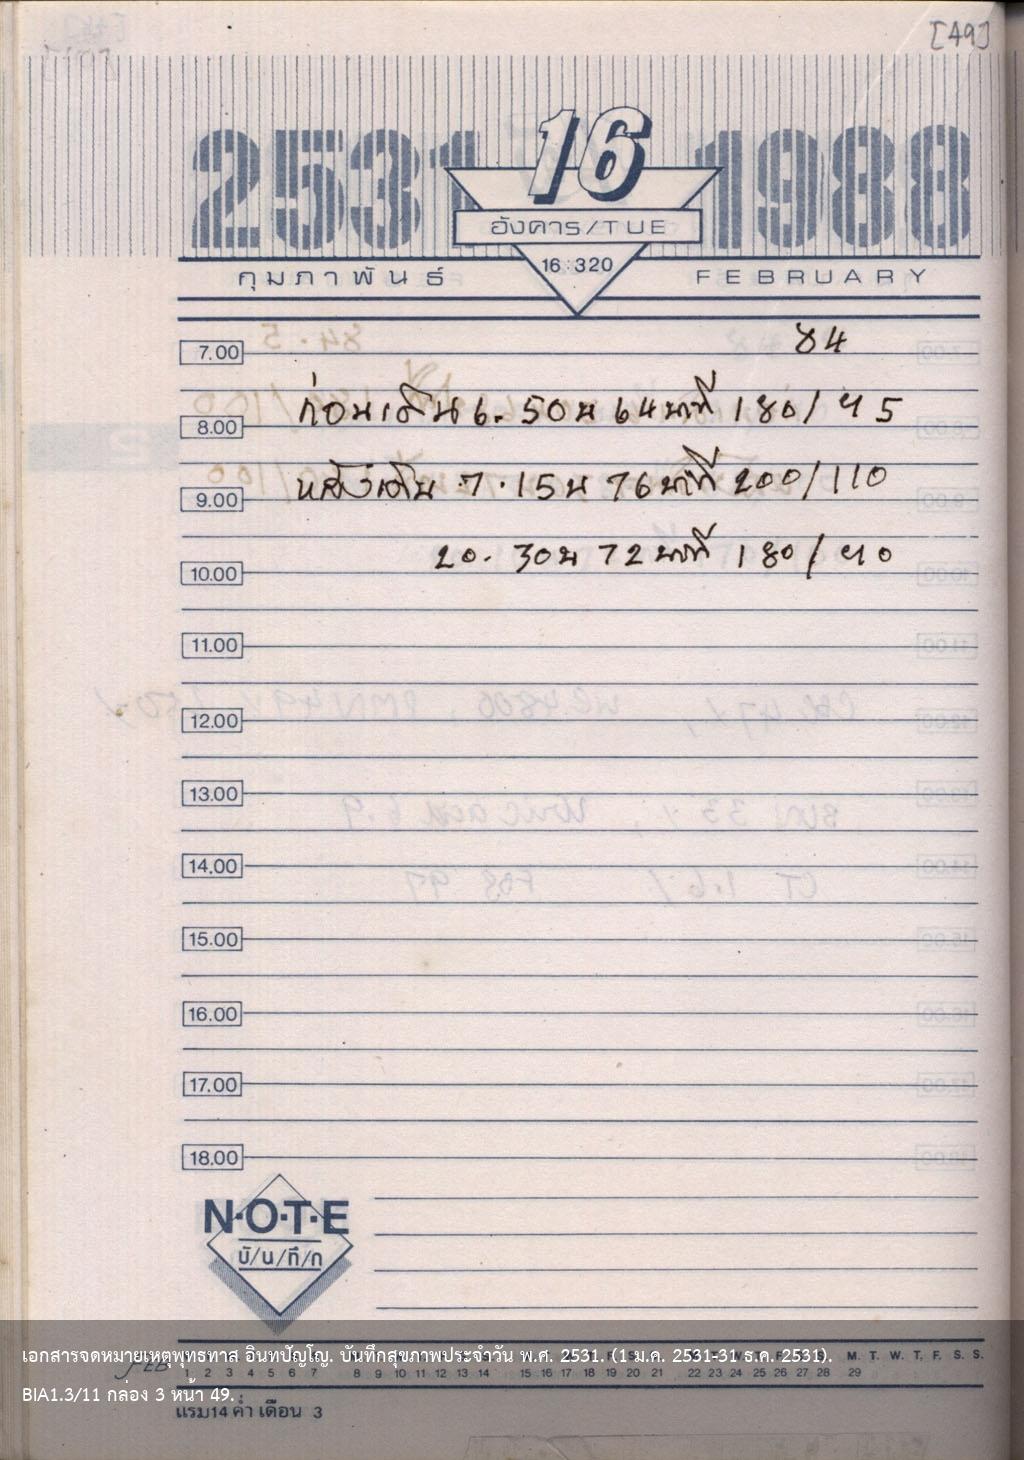 [49]
2531 16 1988
อังคาร/TUE
16:320
กุมภาพันธ์ FEBRUARY
84
7.00
ก่อนเดิน 6.50น 64 นาที 180/95
8.00
หลังเดิน 7.15น 76 นาที 200/110
9.00
20.30น 72 นาที 180/90
10.00
11.00
12.00
13.00
14.00
15.00
16.00
17.00
18.00
N·O·T·E
บั/น/ทึ/ก
เอกสารจดหมายเหตุพุทธทาส อินทปัญโญ. บันทึกสุขภาพประจำวัน พ.ศ. 2531. (1 ม.ค. 2531-31 ธ.ค. 2531).
FEB M. T. W. T. F. S. S.
1 2 3 4 5 6 7 8 9 10 11 12 13 14 15 16 17 18 19 20 21 22 23 24 25 26 27 28 29
BIA1.3/11 กล่อง 3 หน้า 49.
แรม 14 ค่ำ เดือน 3